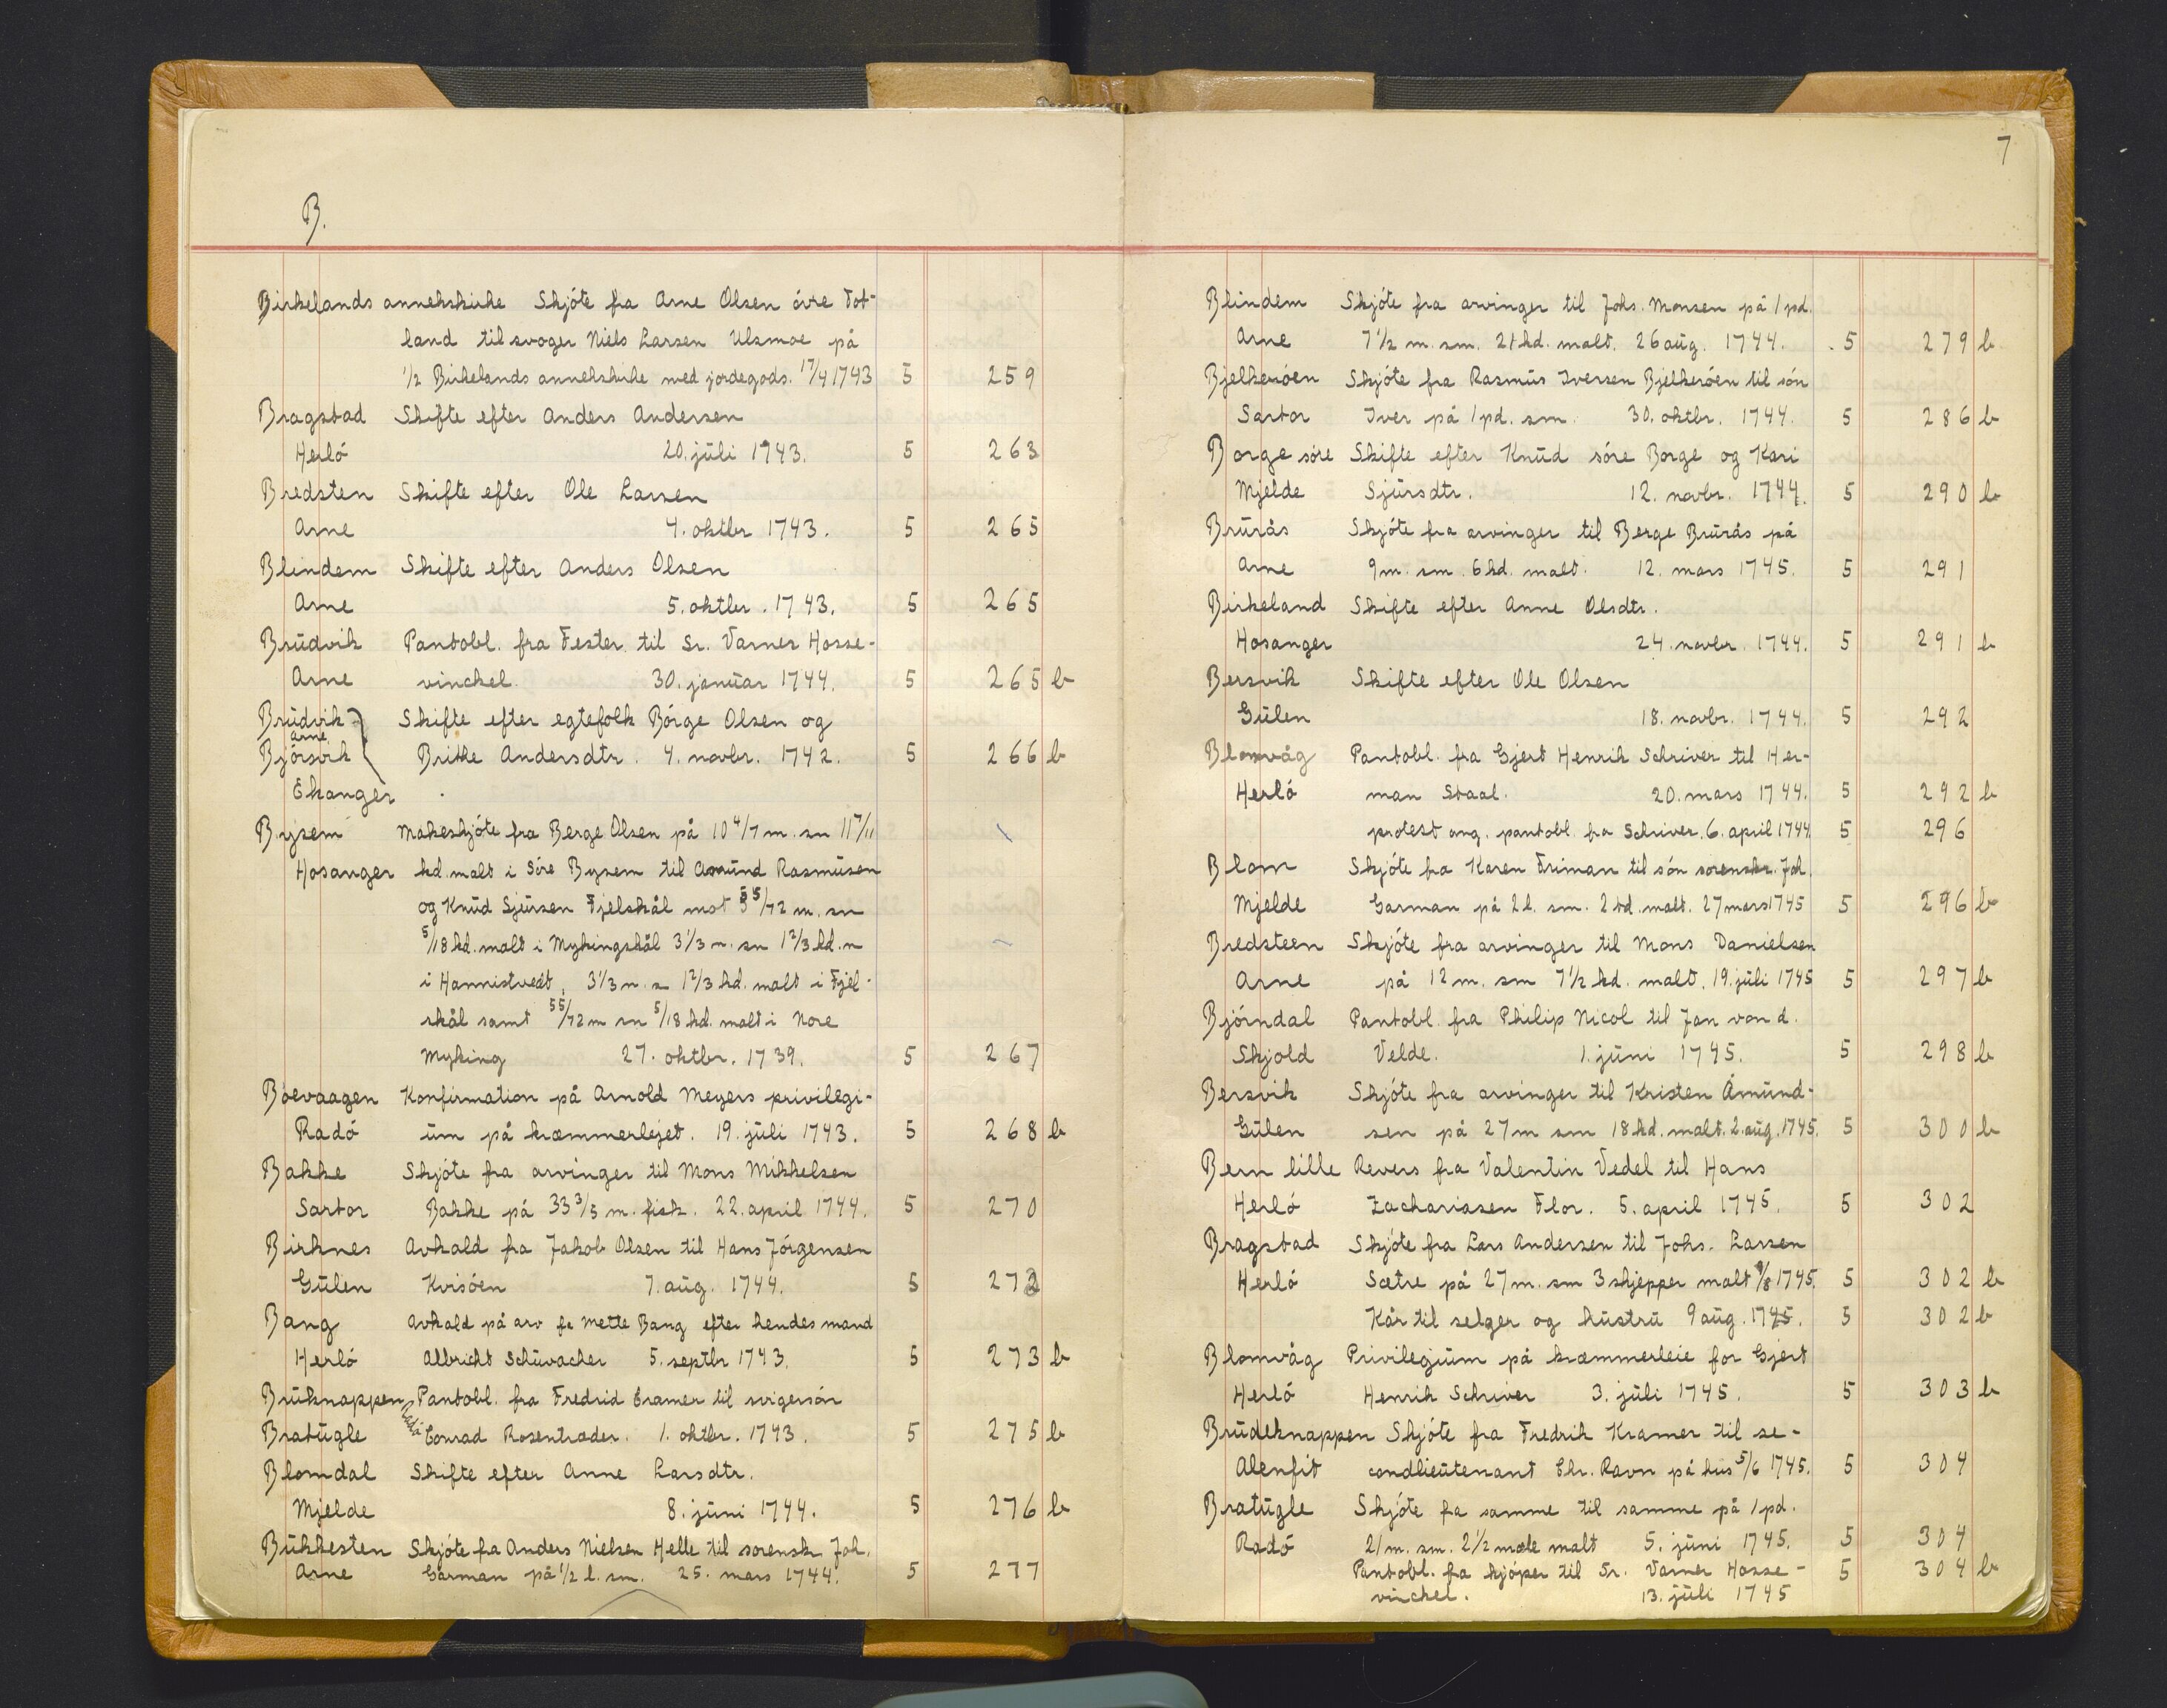 B.
Birkelands annekskirke Skjóte fra Arne Olsen óvre Tot-
land til svoger Niels Larsen Ulsmoe på
1/2 Birkelands annekskirke med jordegods. 17/4 1743 5 259
Bragstad Skifte efter Anders Andersen
Herló 20. júli 1743. 5 263
Bredsten Skifte efter Ole Larsen
Arne 4. oktbr 1743. 5 265
Blindem Skifte efter Anders Olsen
Arne 5. oktbr. 1743. 5 265
Brūdvik Pantobl. fra Fester til Sr. Varner Hosse-
Arne vinckel. 30. janūar 1744. 5 265 b
Brūdvik Skifte efter egtefolk Bórge Olsen og
Arne
Bjórsvik Britke Andersdtr. 4. novbr. 1742. 5 266 b
Ekanger
Bysem Makeskjóte fra Berge Olsen på 10 4/7 m. sn 11 7/11
Hosanger hd. malt i Sóre Bysem til Amūnd Rasmūsen
og Knūd Sjūrsen Fjelskål mot 55/72 m. sn
5/18 hd. malt i Mykingskål 3 1/3 m. sn 1 2/3 hd. m
i Hannistvedt, 3 1/3 m. s 1 2/3 hd. malt i Fjel-
skål samt 55/72 m sn 5/18 hd. malt i Nore
Myking 27. oktbr. 1739. 5 267
Boevaagen Konfirmation på Arnold Meyers privilegi-
Radó ūm på kræmmerlejet. 19. jūli 1743. 5 268 b
Bakke Skjóte fra arvinger til Mons Mikkelsen
Sartor Bakke på 33 3/5 m. fisk. 22. april 1744. 5 270
Birknes Avkald fra Jakob Olsen til Hans Jórgensen
Gūlen Kvisóen 7. aūg. 1744. 5 272
Bang Avkald på arv fra Mette Bang efter hendes mand
Herló Albricht Schūvacher 5. septbr 1743. 5 273 b
Brūknappen Pantobl. fra Fredrid Cramer til svigersón
Radó
Bratūgle Conrad Rosentræder. 1. oktbr. 1743. 5 275 b
Blomdal Skifte efter Anne Larsdtr.
Mjelde 8. jūni 1744. 5 276 b
Būkkesten Skjóte fra Anders Nielsen Helle til sorenskr. Joh.
Arne Garman på 1/2 l. sm. 25. mars 1744. 5 277
7
Blindem Skjóte fra arvinger til Johs. Monsen på 1 pd.
Arne 7 1/2 m. sm. 21 hd. malt. 26 aūg. 1744. 5 279 b
Bjelkeróen Skjóte fra Rasmūs Iversen Bjelkeróen til són
Sartor Iver på 1 pd. sm. 30. oktbr. 1744. 5 286 b
Borge sóre Skifte efter Knūd sóre Borge og Kari
Mjelde Sjūrsdtr. 12. novbr. 1744. 5 290 b
Brūrås Skjóte fra arvinger til Berge Brūrås på
Arne 9 m. sm. 6 hd. malt. 12. mars 1745. 5 291
Birkeland Skifte efter Anne Olsdtr.
Hosanger 24. novbr. 1744. 5 291 b
Bersvik Skifte efter Ole Olsen
Gūlen 18. novbr. 1744. 5 292
Blomvåg Pantobl. fra Gjert Henrik Schriver til Her-
Herló man Staal. 20. mars 1744. 5 292 b
protest ang. pantobl. fra Schriver. 6. april 1744. 5 296
Blom Skjóte fra Karen Friman til són sorenskr. Joh.
Mjelde Garman på 2 l. sm. 2 td. malt. 27 mars 1745 5 296 b
Bredsteen Skjóte fra arvinger til Mons Danielsen
Arne på 12 m. sm 7 1/2 hd. malt. 19. jūli 1745 5 297 b
Bjórndal Pantobl. fra Philip Nicol til Jan von d.
Skjold Velde. 1. jūni 1745. 5 298 b
Bersvik Skjóte fra arvinger til Kristen Åmūnd-
Gūlen sen på 27 m sm 18 hd. malt. 2. aūg. 1745. 5 300 b
Bern lille Revers fra Valentin Vedel til Hans
Herló Zachariasen Flor. 5. april 1745. 5 302
Bragstad Skjóte fra Lars Andersen til Johs. Larsen
Herló Sætre på 27 m. sm 3 skjepper malt 9/8 1745. 5 302 b
Kår til selger og hūstrū 9 aūg. 1745. 5 302 b
Blomvåg Privilegiūm på kræmmerleie for Gjert
Herló Henrik Schriver 3. jūli 1745. 5 303 b
Brūdeknappen Skjóte fra Fredrik Kramer til se-
Alenfit condlieūtenant Chr. Ravn på hūs 5/6 1745. 5 304
Bratūgle Skjóte fra samme til samme på 1 pd.
Radó 21 m. sm. 2 1/2 mæle malt 5. jūni 1745. 5 304
Pantobl. fra kjóper til Sr. Varner Hosse- 5 304 b
vinckel. 13. jūli 1745